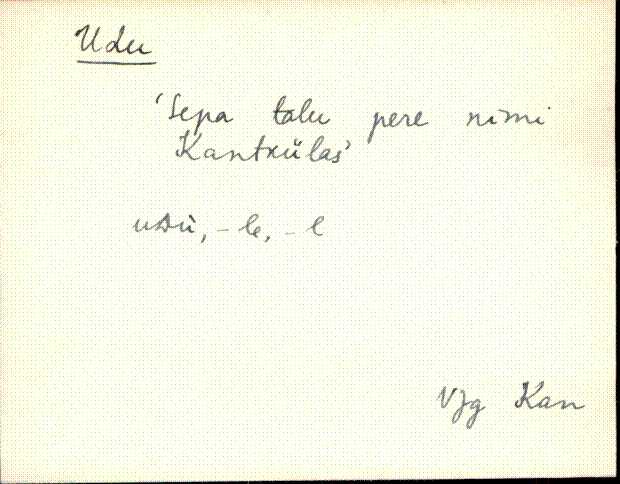 Udu
'Sepa talu pere nimi
Kantküla's
uDu, -le, -l
VJg Kan